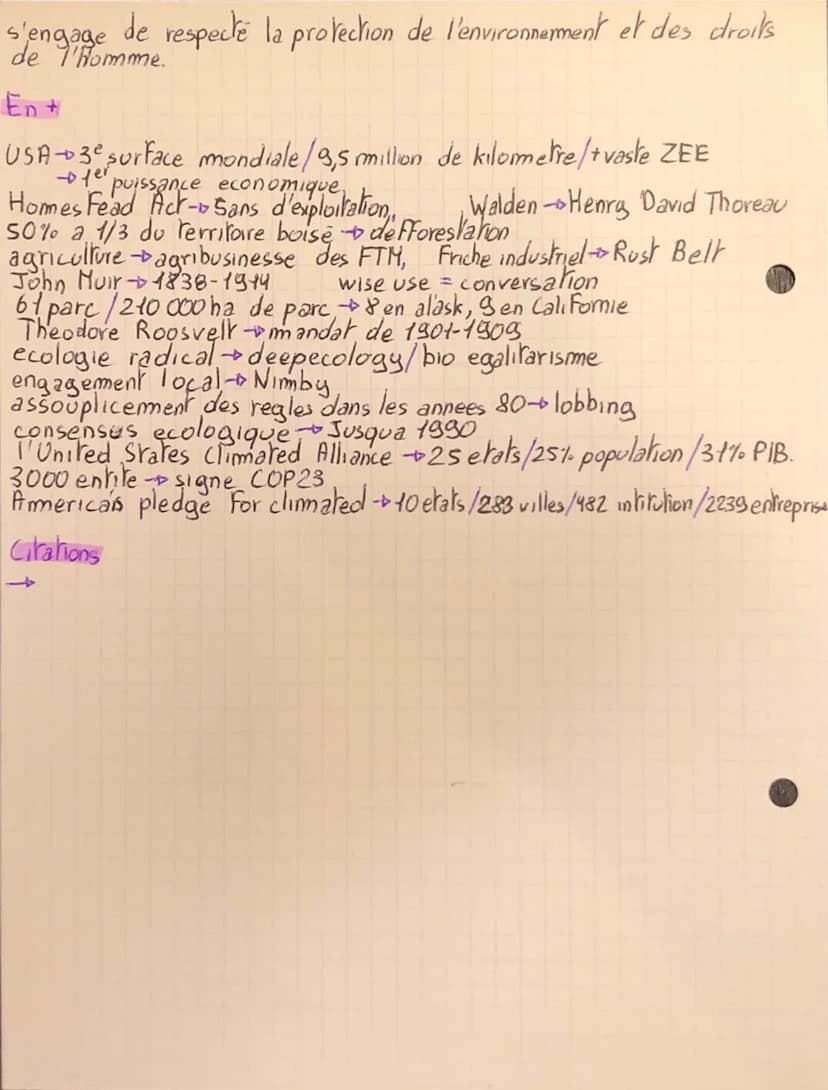 s'engage de respecté la protection de l'environnement et des droits
de l'Homme.
En +
USA → 3e surface mondiale / 9,5 million de kilometre / + vaste ZEE
→ 1er puissance economique
Homes Fead Act → 5ans d'exploitation, Walden → Henry David Thoreau
50% a 1/3 du territoire boisé → defforestation
agriculture → agribusinesse des FTM, Friche industriel → Rust Belt
John Muir → 1838-1914 wise use = conversation
61 parc / 210 000 ha de parc → 8 en alask, 9 en Californie
Theodore Roosvelt → mandat de 1901-1909
ecologie radical → deepecology / bio egalitarisme
engagement local → Nimby
assouplicement des regles dans les annees 80 → lobbing
consensus ecologique → Jusqua 1990
l'United States Climated Alliance → 25 etats / 25% population / 31% PIB.
3000 entite → signe COP23
American's pledge For climated → 10 etats / 283 villes / 482 intitution / 2239 entreprise
Citations
→